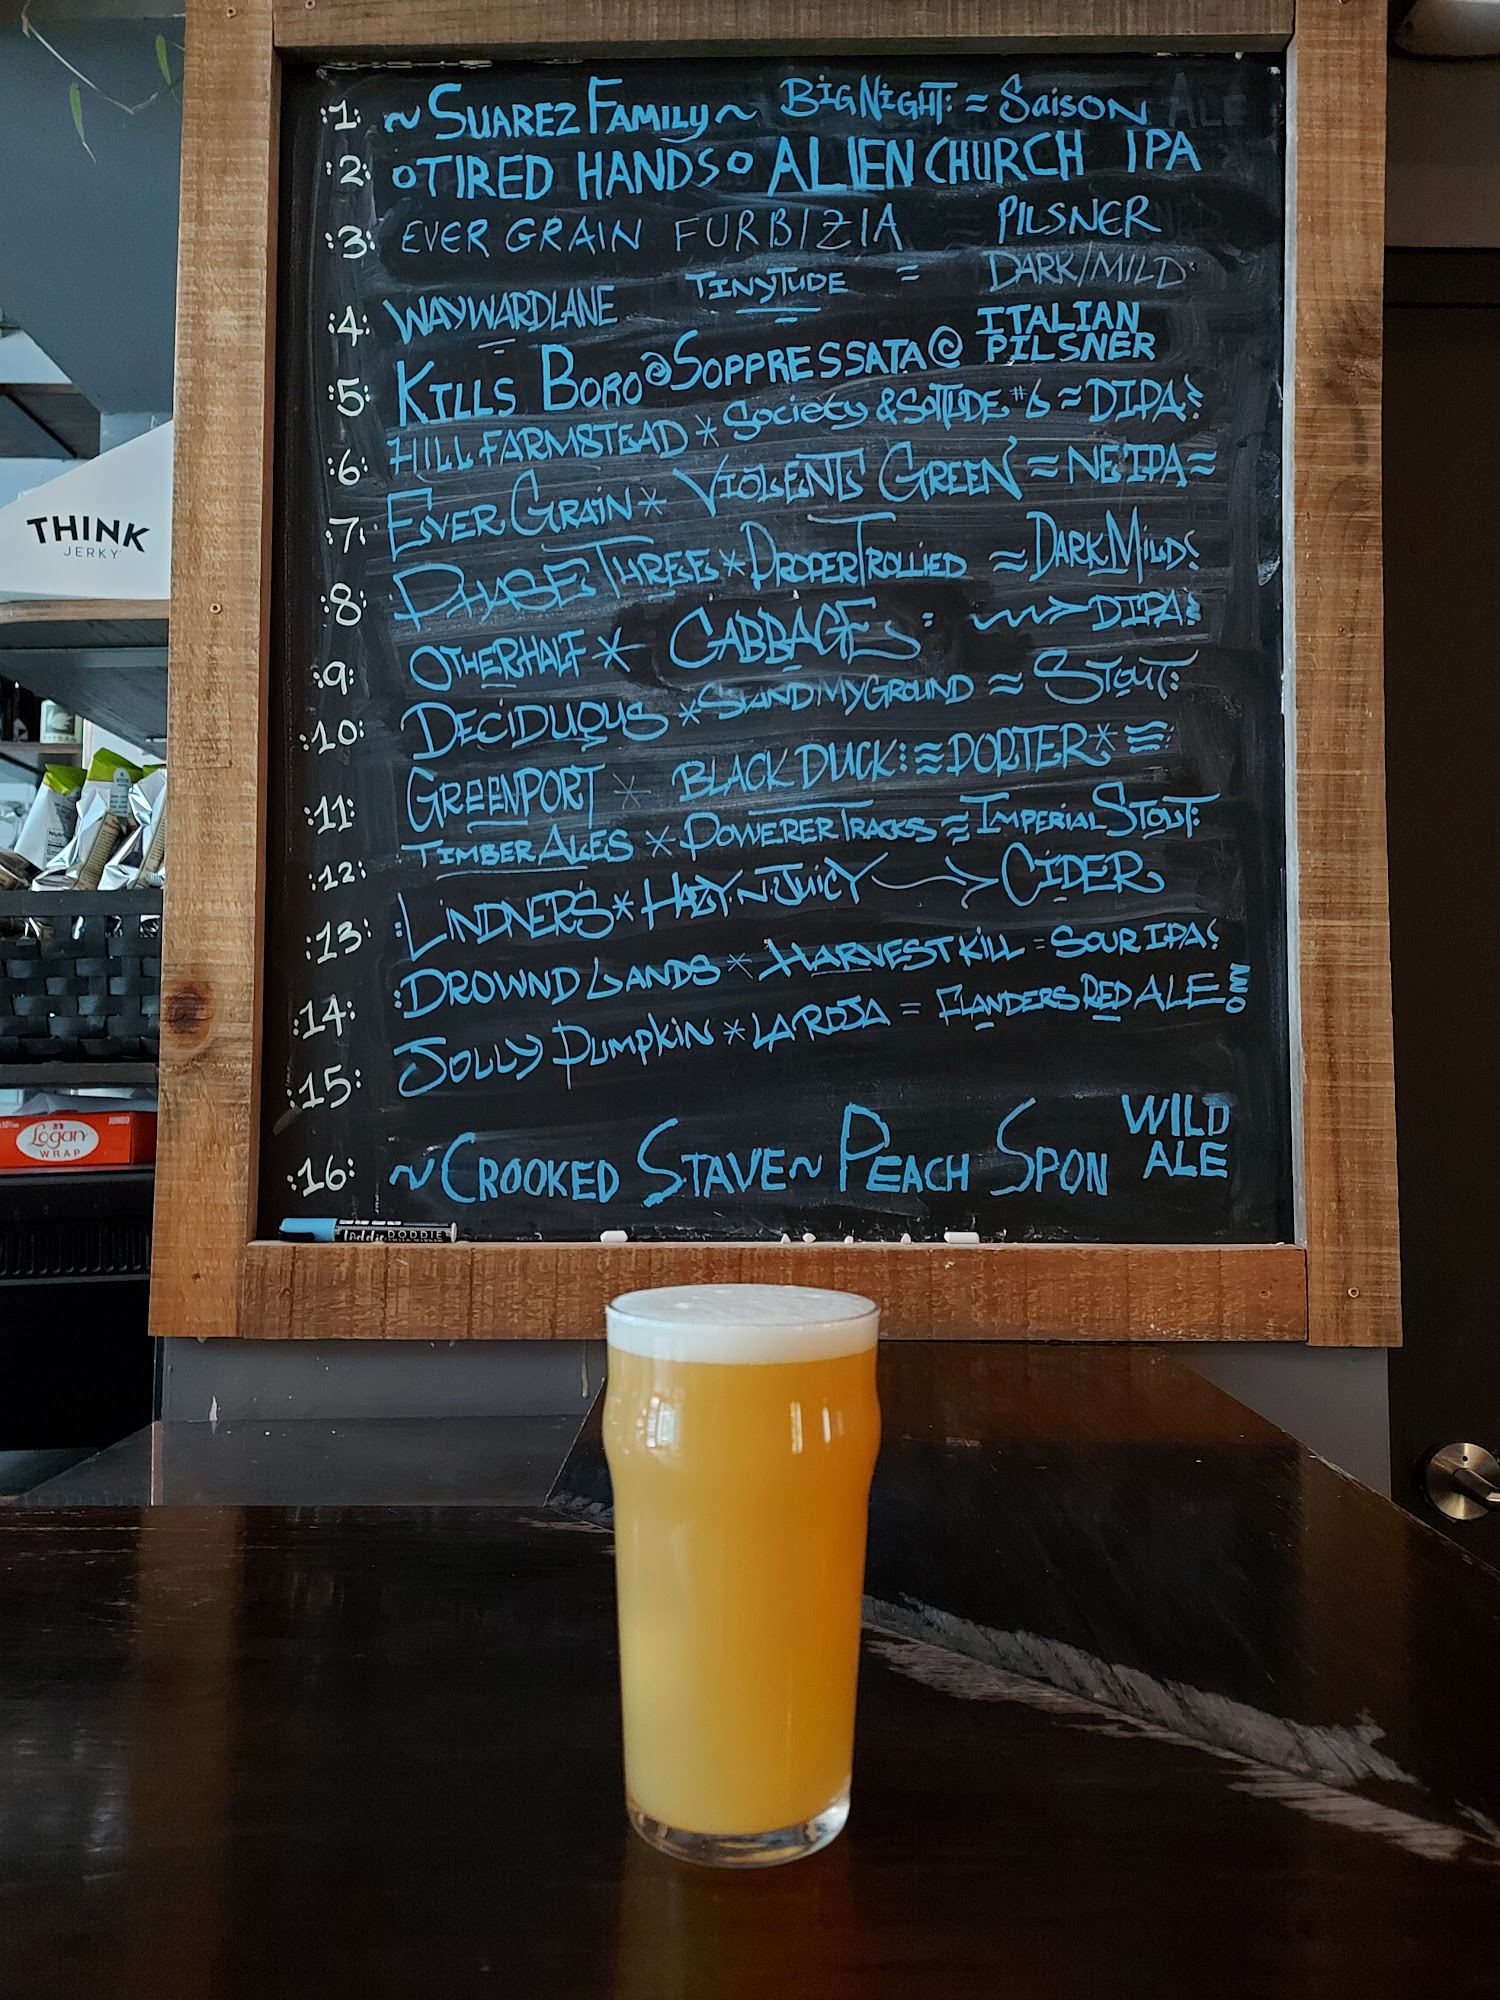 :1: ~ SUAREZ FAMILY ~ BIG NIGHT: = SAISON ALE
:2: °TIRED HANDS° ALIEN CHURCH IPA
:3: EVER GRAIN FURBIZIA = PILSNER
:4: WAYWARDLANE TINYTUDE = DARK/MILD
:5: KILLS BORO @ SOPPRESSATA @ ITALIAN PILSNER
:6: HILL FARMSTEAD * SOCIETY & SOLITUDE #6 ≈ DIPA:
:7: EVER GRAIN * VIOLENTS GREEN ≈ NEIPA ≈
:8: PHASE THREE * PROPER TROLLIED ≈ DARK MILD:
:9: OTHERHALF * CABBAGE: ~~> DIPA:
:10: DECIDUOUS * STAND MY GROUND ≈ STOUT:
:11: GREENPORT * BLACK DUCK: ≈ PORTER * ≈
:12: TIMBER ALES * POWERER TRACKS ≈ IMPERIAL STOUT:
:13: :LINDNER'S * HAZY·N·JUICY → CIDER
:14: :DROWND LANDS * HARVEST KILL = SOUR IPA:
:15: JOLLY PUMPKIN * LA ROJA = FLANDERS RED ALE
:16: ~ CROOKED STAVE ~ PEACH SPON WILD ALE
THINK
JERKY
Logan
WRAP
DODDIE